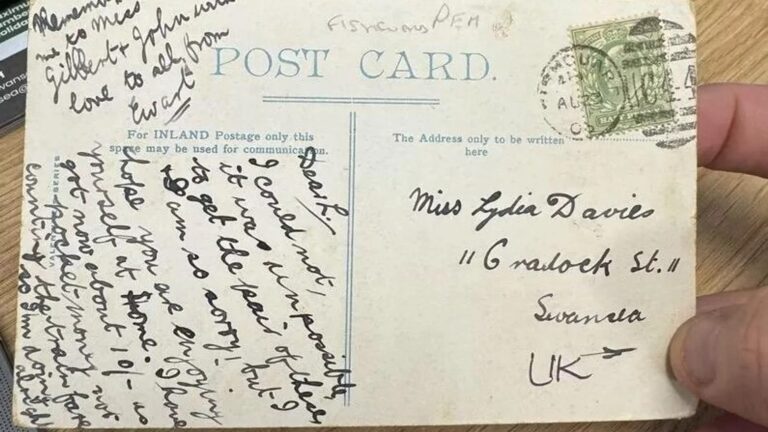 Remember
me to Miss
Gilbert & John with
love to all from
Ewart
FISHGUARD PEM
POST CARD.
For INLAND Postage only this
space may be used for communication.
The Address only to be written
here
Dear L.
I could not,
it was impossible,
to get the pair of these,
I am so sorry! but I
hope you are enjoying
yourself at home. I have
got now about 10/- as
pocket-money not
counting the train fare
so I'm doing
alright
Miss Lydia Davies
"11 Cradock St."
Swansea
UK
FISHGUARD
AU 23